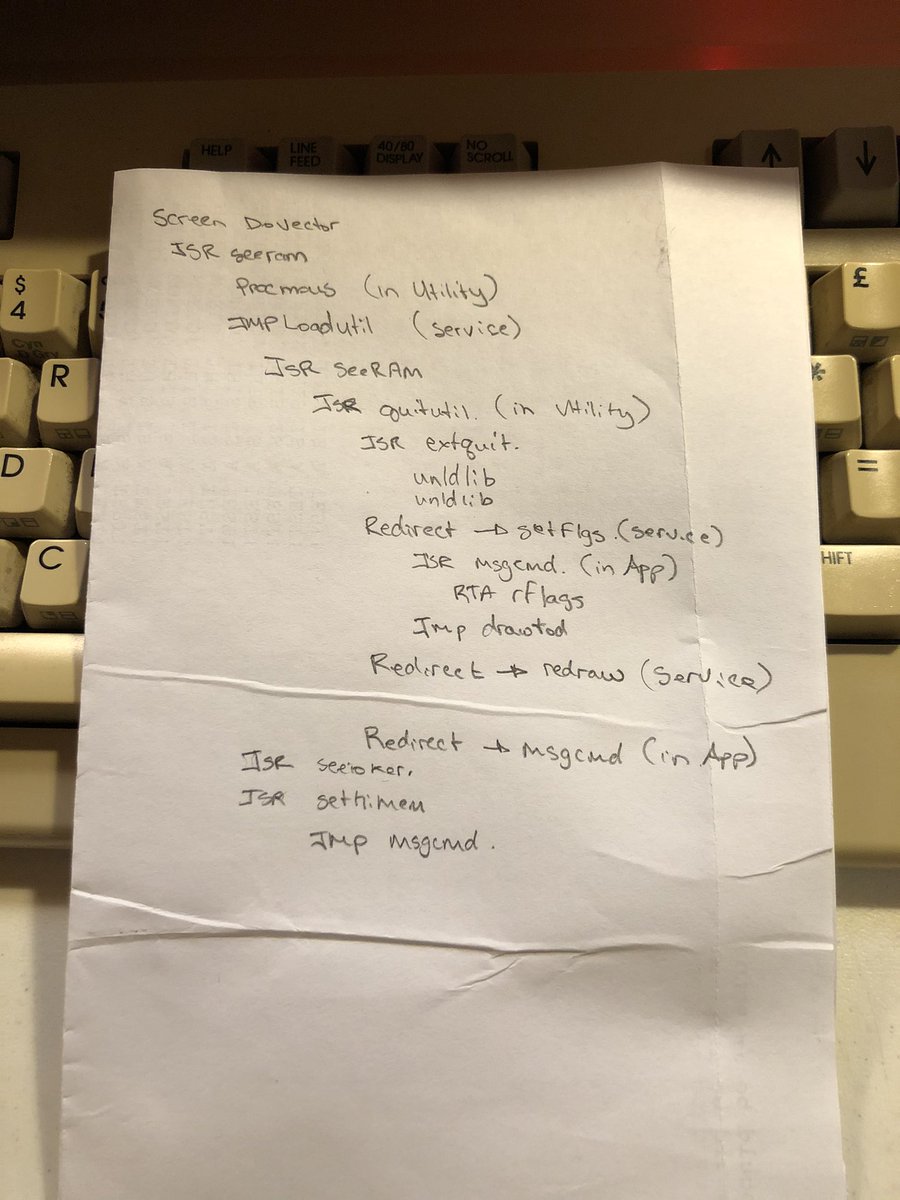 HELP
LINE FEED
40/80 DISPLAY
NO SCROLL
↑
↓
Screen DoVector
JSR seeram
Procmous (in Utility)
JMP Loadutil (service)
JSR SeeRAM
JSR quitutil. (in Utility)
JSR extquit.
unldlib
unldlib
Redirect → setflgs. (service)
JSR msgcmd. (in App)
RTA rflags
Jmp drawtod
Redirect → redraw (service)
Redirect → msgcmd (in App)
JSR seeioker.
JSR sethimem
Jmp msgcmd.
$
4
R
D
C
£
*
=
SHIFT